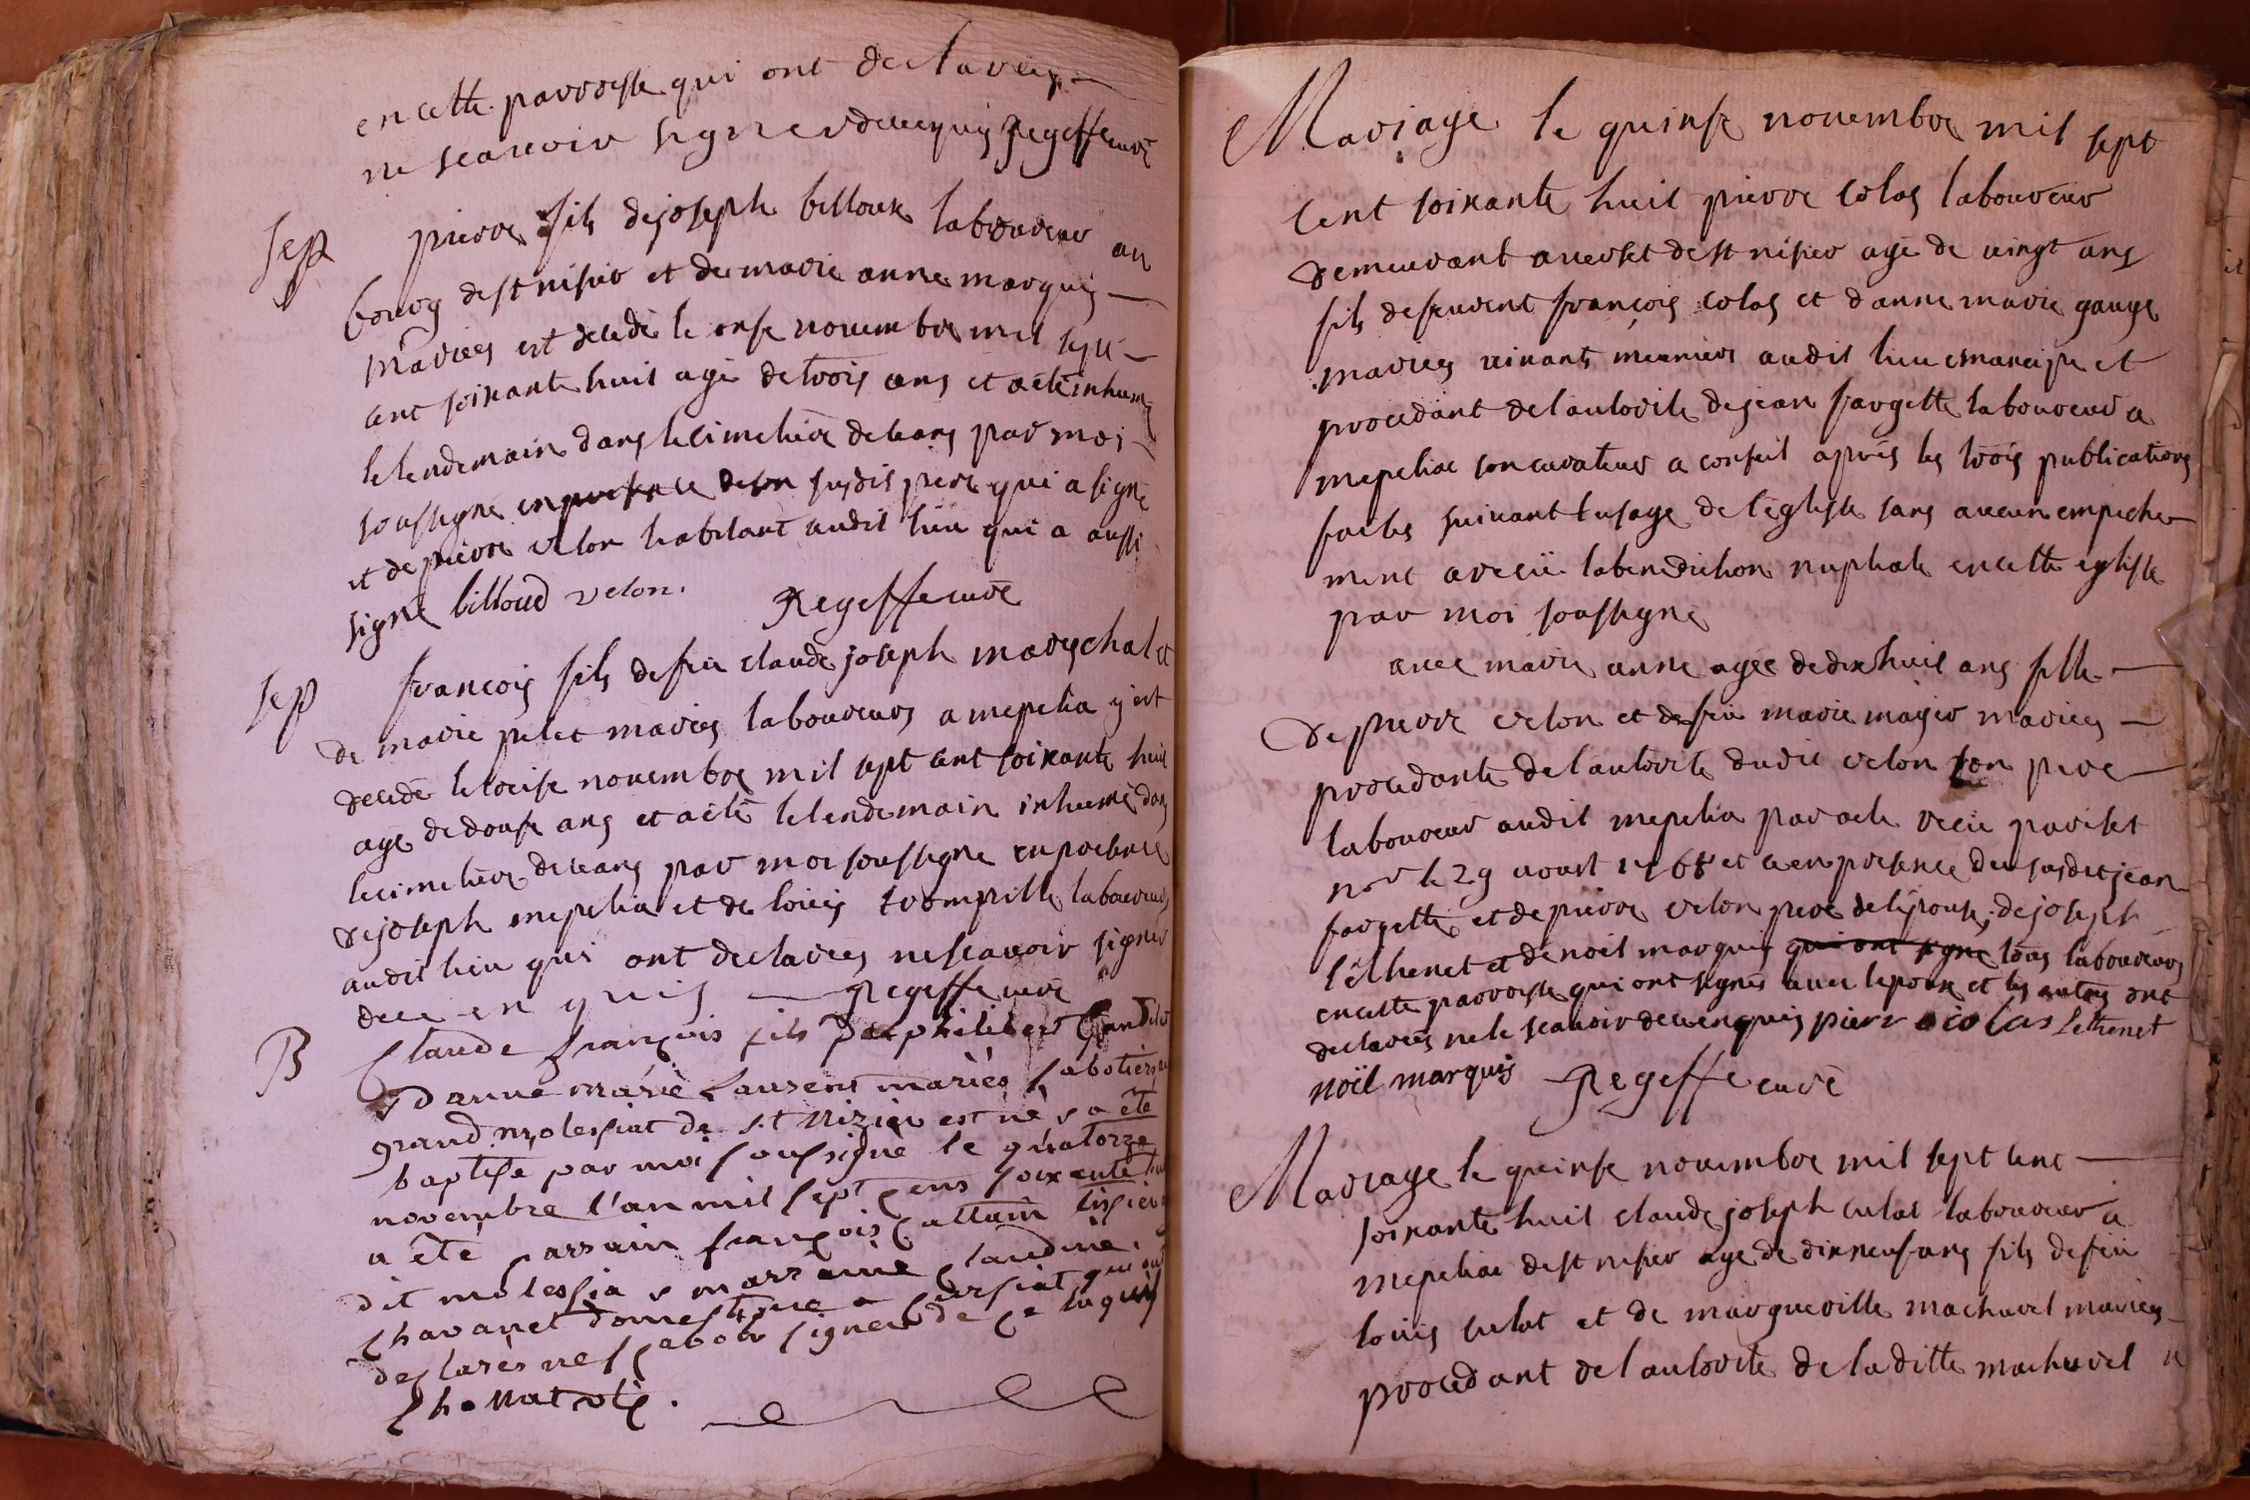 en cette parroisse qui ont declareez
ne scauoir signer de ce enquis Regeffe curé
sep pierre fils de joseph billoux laboureur au
bourg de st nisier et de marie anne marquis
mariees est decedé le onse nouembre mil sept
cent soixante huit agé de trois ans et a été inhumé
le lendemain dans le cimetière de ceans par moi
soussigné en presence de son susdit pere qui a signé
et de pierre velon habitant audit lieu qui a aussi
signé billoud velon. Regeffe curé
sep françois fils de feu claude joseph mareschal et
de marie pelet mariés laboureurs a mepelia y est
decedé le treise nouembre mil sept cent soixante huit
agé de douse ans et a été le lendemain inhumé dans
le cimetière de ceans par moi soussigné en presence
de joseph mepelia et de louis trompille laboureurs
audit lieu qui ont declarees ne scauoir signer
de ce enquis Regeffe curé
B Claude françois fils de philibert
& d'anne marie Laurent mariés sabotiers au
grand molessiat de st Nizier est né & a été
baptisé par moi soussigné le quatorze
novembre l'an mil sept cens soixante huit
a été parrain françois cattain
dit molessia & marraine claudine
chavanet domestique a qui ont
declarés ne sçavoir signer de ce enquis
Mariage le quinse nouembre mil sept
cent soixante huit pierre colas laboureur
demeurant a verset de st nisier agé de vingt ans
fils de feuvent françois colas et d'anne marie gauge
mariees vivants meuniers audit lieu emancipé et
procedant de l'autorité de jean fargette laboureur a
mepeliae son curateur a conseil après les trois publications
faites suivant l'usage de l'eglise sans aucun empeche
ment a recüe la benediction nuptiale en cette eglise
par moi soussigné
avec marie anne agée de dix huit ans fille
de pierre velon et de feue marie majer mariees
procedante de l'autorité dudit velon son pere
laboureur audit mepelia par acte recu pariset
nore le 29 aoust 1768 et ce en presence du susdit jean
fargette et de pierre velon pere de l'epouse, de joseph
lethenet et de noël marquis qui ont signé tous laboureurs
en cette parroisse qui ont signés avec lepoux et les autres ont
declarés ne le scauoir de ce enquis pierr colas lethenet
noël marquis Regeffe curé
Mariage le quinse nouembre mil sept cent
soixante huit claude joseph culat laboureur a
mepeliae de st nisier agé de dix neuf ans fils de feu
louis culat et de margueritte machurel mariees
procedant de l'autorité de la ditte machurel